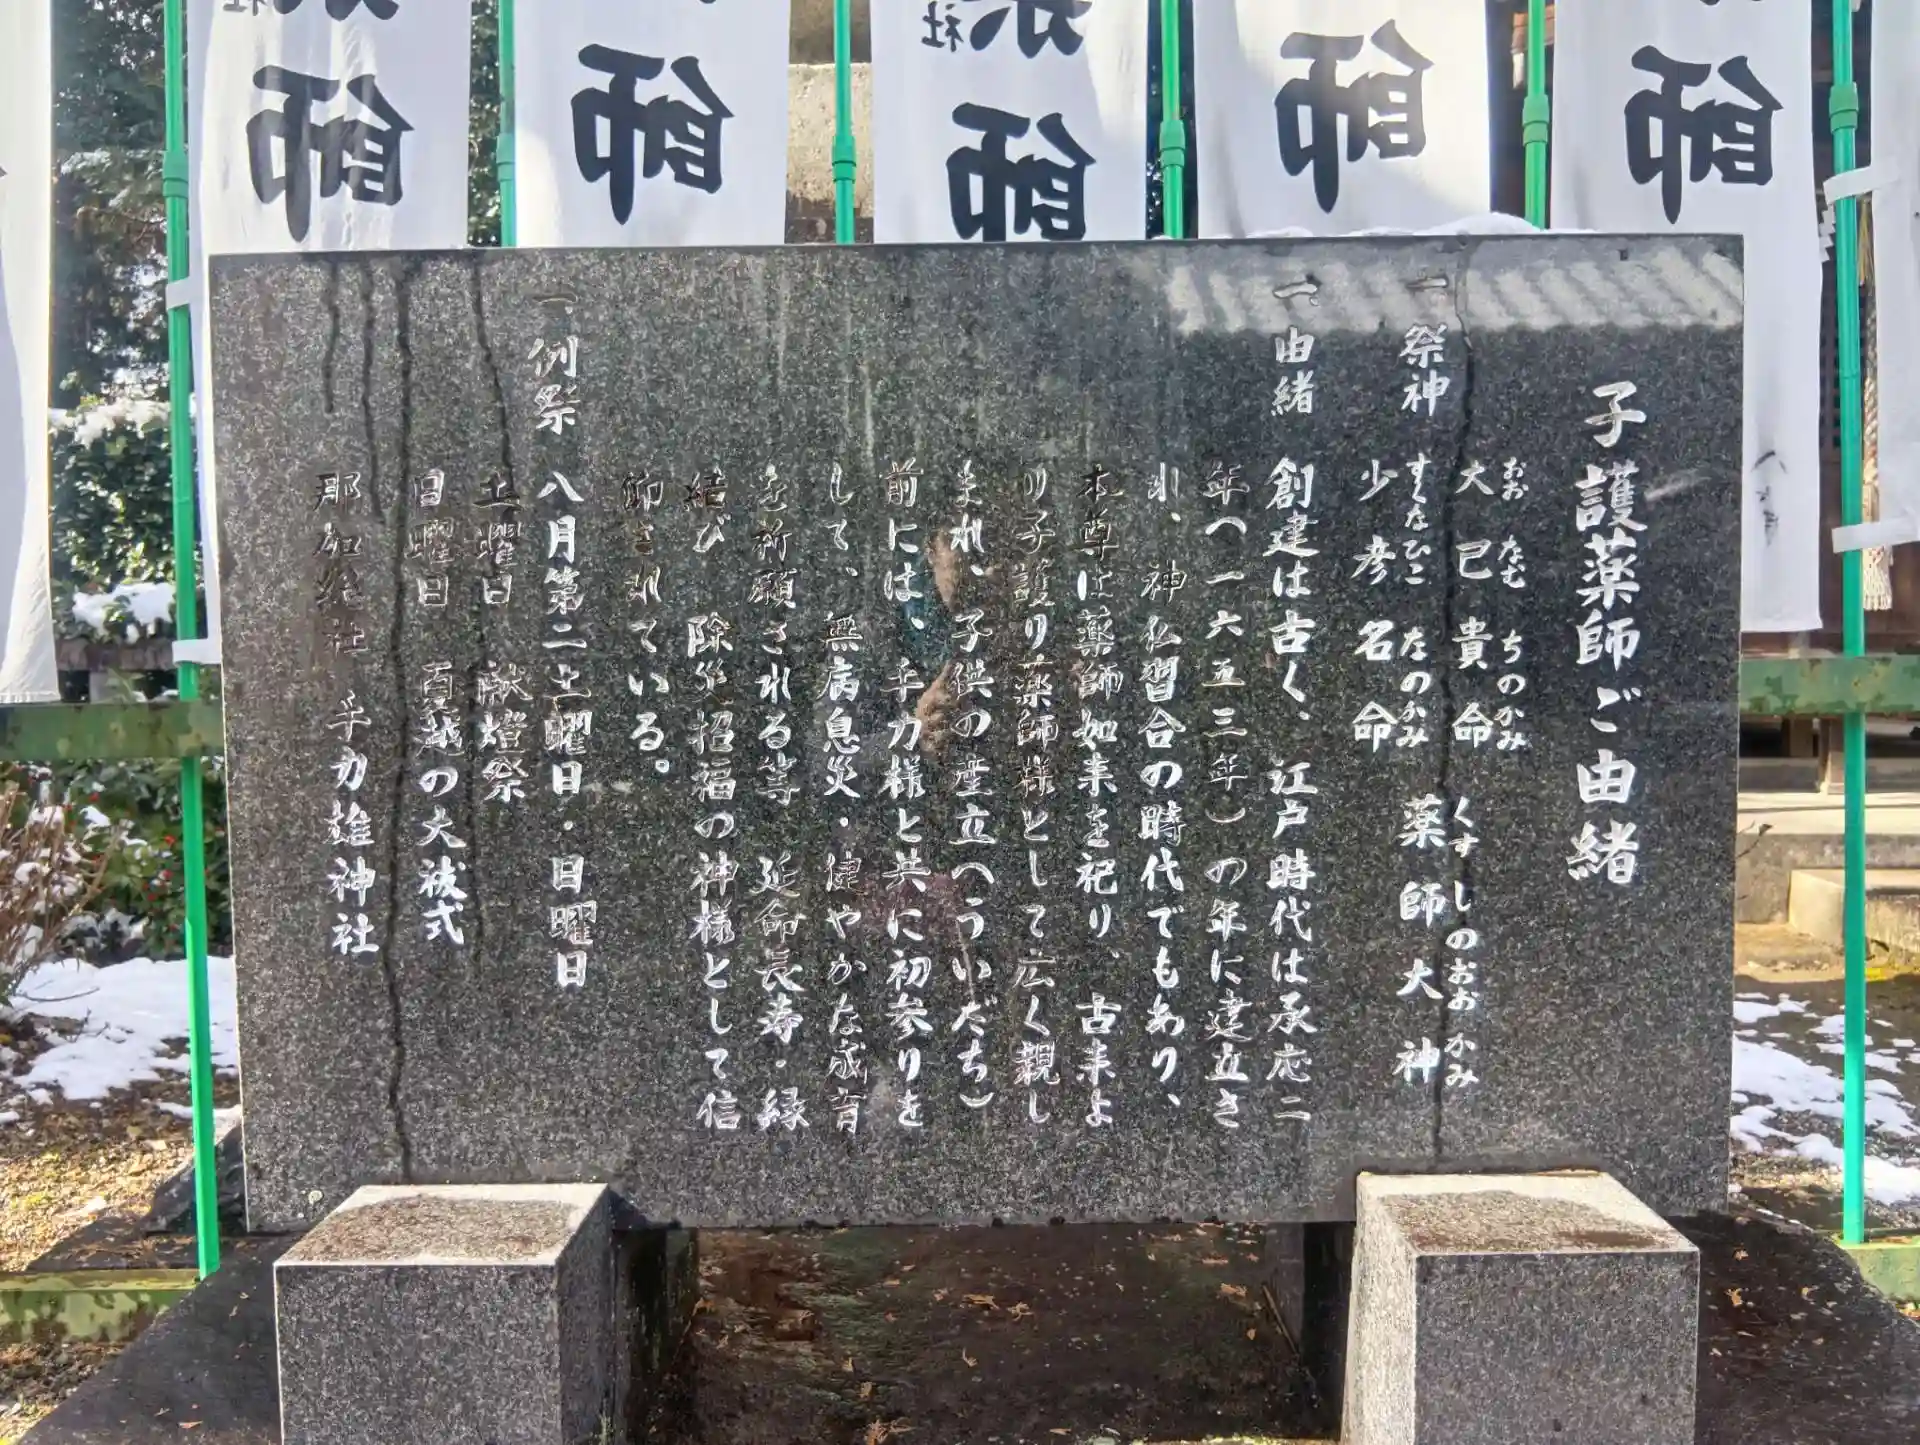 子護薬師ご由緒
一、祭神
おお なむ ちのかみ
大己貴命
すくなひこ なのかみ
少彦名命
くすしのおおかみ
薬師大神
一、由緒 創建は古く、江戸時代は承応二
年(一六五三年)の年に建立さ
れ、神仏習合の時代でもあり、
本尊は薬師如来を祀り、古来よ
り子護り薬師様として広く親し
まれ、子供の産立(ういだち)
前には、手力様と共に初参りを
して、無病息災・健やかな成育
を祈願される等 延命長寿・縁
結び 除災招福の神様として信
仰されている。
一、例祭 八月第二土曜日・日曜日
土曜日 献燈祭
日曜日 夏越の大祓式
那加総社 手力雄神社
師
師
師
師
師
社
社